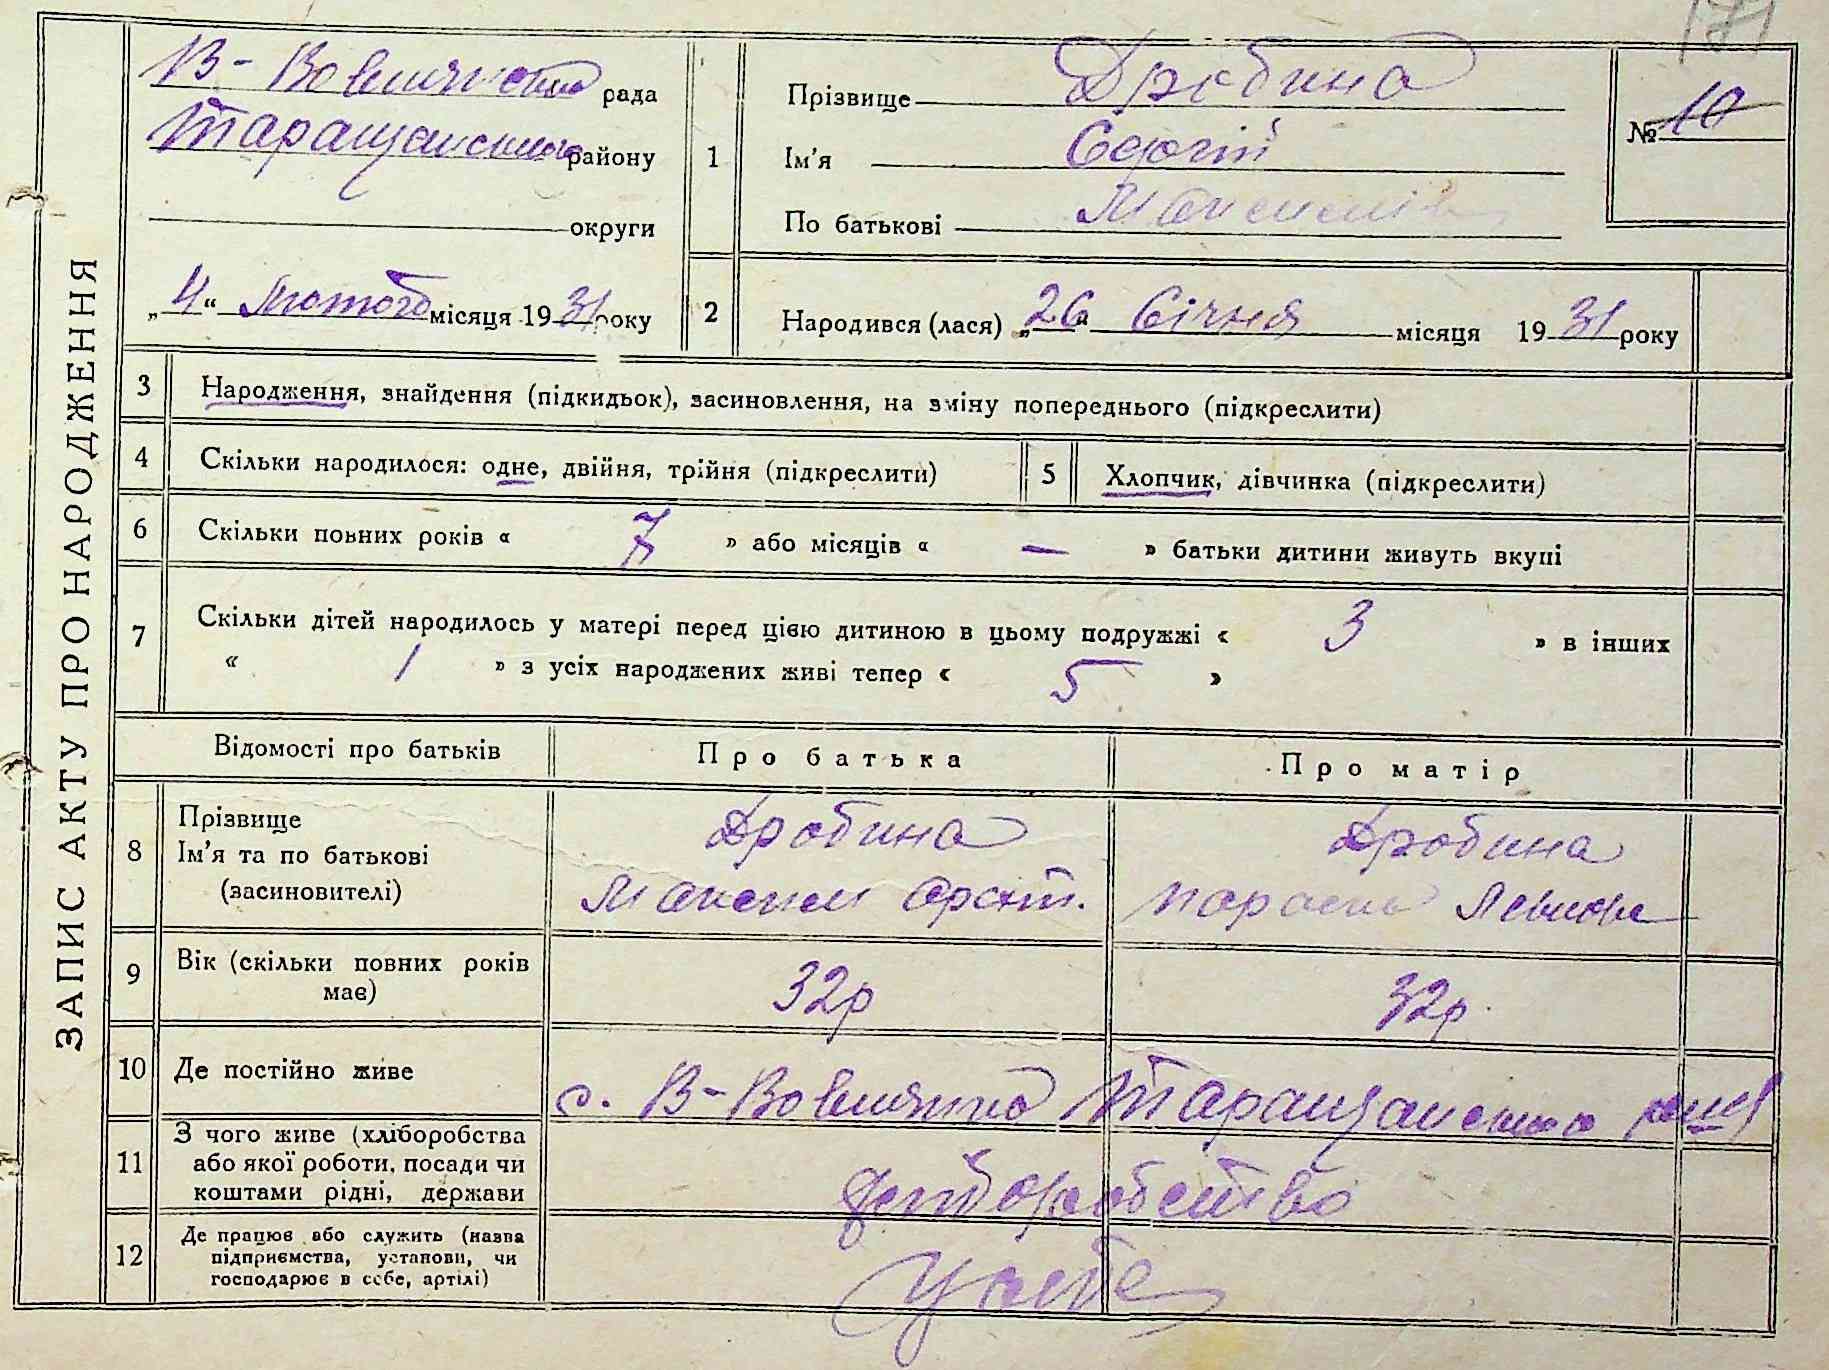 ЗАПИС АКТУ ПРО НАРОДЖЕННЯ
В-Вовнянська рада
Таращанського району
округи
„4“ Лютого місяця 1931 року
1
Прізвище Дробина
Ім'я Сергій
По батькові Максимів
№ 10
2
Народився (лася) „26“ Січня місяця 1931 року
3 Народження, знайдення (підкидьок), засиновлення, на зміну попереднього (підкреслити)
4 Скільки народилося: одне, двійня, трійня (підкреслити) 5 Хлопчик, дівчинка (підкреслити)
6 Скільки повних років « 7 » або місяців « — » батьки дитини живуть вкупі
7 Скільки дітей народилось у матері перед цією дитиною в цьому подружжі « 3 » в інших
« 1 » з усіх народжених живі тепер « 5 »
Відомості про батьків Про батька Про матір
8 Прізвище Дробина Дробина
Ім'я та по батькові Максим Параска
(засиновителі)
9 Вік (скільки повних років має) 32р 32р.
10 Де постійно живе с. В-Вовнянка Таращанського
11 З чого живе (хліборобства
або якої роботи, посади чи
коштами рідні, держави
хліборобство
12 Де працює або служить (назва
підприємства, установи, чи
господарює в себе, артілі)
У себе